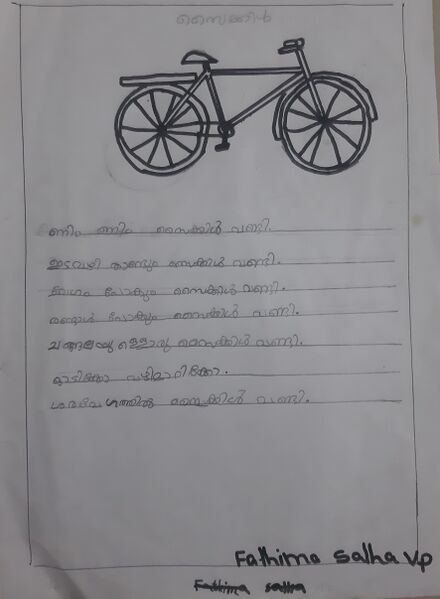 സൈക്കിൾ
ണിം ണിം സൈക്കിൾ വണ്ടി.
ഇടവഴി താണ്ടും സൈക്കിൾ വണ്ടി.
വേഗം പോകും സൈക്കിൾ വണ്ടി.
രണ്ടാൾ പോകും സൈക്കിൾ വണ്ടി.
ചങ്ങലയുള്ളൊരു സൈക്കിൾ വണ്ടി.
ഓടിക്കോ വഴിമാറിക്കോ.
ശരവേഗത്തിൽ സൈക്കിൾ വണ്ടി.
Fathima Salha Vp
Fathima salha